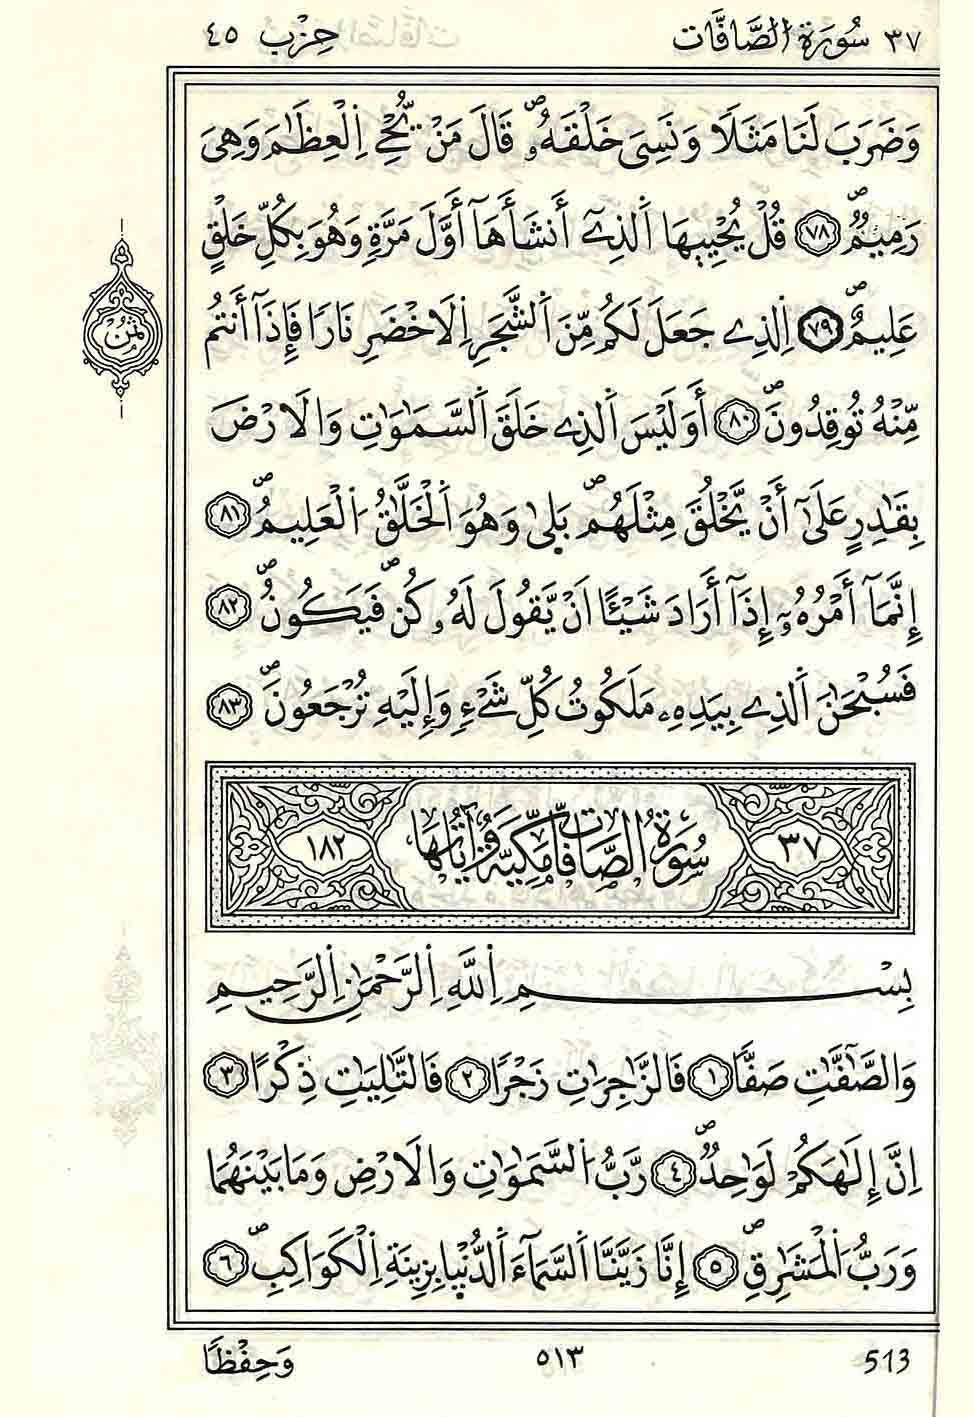 ٣٧ سُورَةُ الصَّافَّاتِ حِزْب ٤٥
وَضَرَبَ لَنَا مَثَلًا وَنَسِيَ خَلْقَهُۥ قَالَ مَنْ يُّحْيِ اِ۬لْعِظَٰمَ وَهِيَ
رَمِيمٌ ٧٨ قُلْ يُحْيِيهَا اَ۬لذِےٓ أَنشَأَهَآ أَوَّلَ مَرَّةٍ وَهُوَ بِكُلِّ خَلْقٍ
عَلِيمٌ ٧٩ اِ۬لذِے جَعَلَ لَكُم مِّنَ اَ۬لشَّجَرِ اِ۬لَاخْضَرِ نَارًا فَإِذَآ أَنتُم
ثُمُن
مِّنْهُ تُوقِدُونَ ٨٠ أَوَلَيْسَ اَ۬لذِے خَلَقَ اَ۬لسَّمَٰوَٰتِ وَالَارْضَ
بِقَٰدِرٍ عَلَىٰٓ أَنْ يَّخْلُقَ مِثْلَهُم بَلَىٰ وَهُوَ اَ۬لْخَلَّٰقُ اُ۬لْعَلِيمُ ٨١
إِنَّمَآ أَمْرُهُۥٓ إِذَآ أَرَادَ شَيْـًٔا اَنْ يَّقُولَ لَهُۥ كُن فَيَكُونُ ٨٢
فَسُبْحَٰنَ اَ۬لذِے بِيَدِهِۦ مَلَكُوتُ كُلِّ شَےْءٍ وَإِلَيْهِ تُرْجَعُونَ ٨٣
٣٧ سُورَةُ الصَّافَّاتِ مَكِّيَّة وَآيَاتُهَا ١٨٢
بِسْمِ اِ۬للَّهِ اِ۬لرَّحْمَٰنِ اِ۬لرَّحِيمِ
وَالصَّٰٓفَّٰتِ صَفًّا ١ فَالزَّٰجِرَٰتِ زَجْرًا ٢ فَالتَّٰلِيَٰتِ ذِكْرًا ٣
اِنَّ إِلَٰهَكُمْ لَوَٰحِدٌ ٤ رَّبُّ اُ۬لسَّمَٰوَٰتِ وَالَارْضِ وَمَا بَيْنَهُمَا
وَرَبُّ اُ۬لْمَشَٰرِقِ ٥ إِنَّا زَيَّنَّا اَ۬لسَّمَآءَ اَ۬لدُّنْيَا بِزِينَةِ اِ۬لْكَوَاكِبِ ٦
وَحِفْظًا ٥١٣ 513